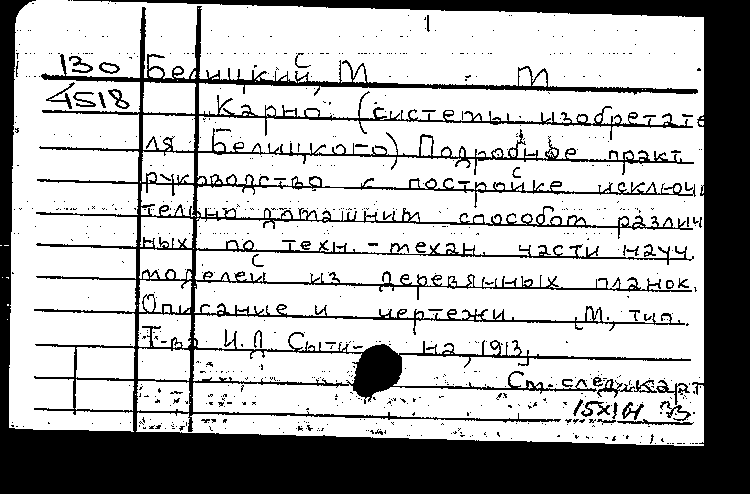 1
130 Белицкий, М М
4518 Карно (системы изобретате
ля Белицкого) Подробное практ.
руководство к постройке исключи
тельно домашним способом различ
ных по техн.-механ. части науч.
моделей из деревянных планок.
Описание и чертежи. [М., тип.
Т-ва И.Д. Сыти- на, 1913].
См. след. карт